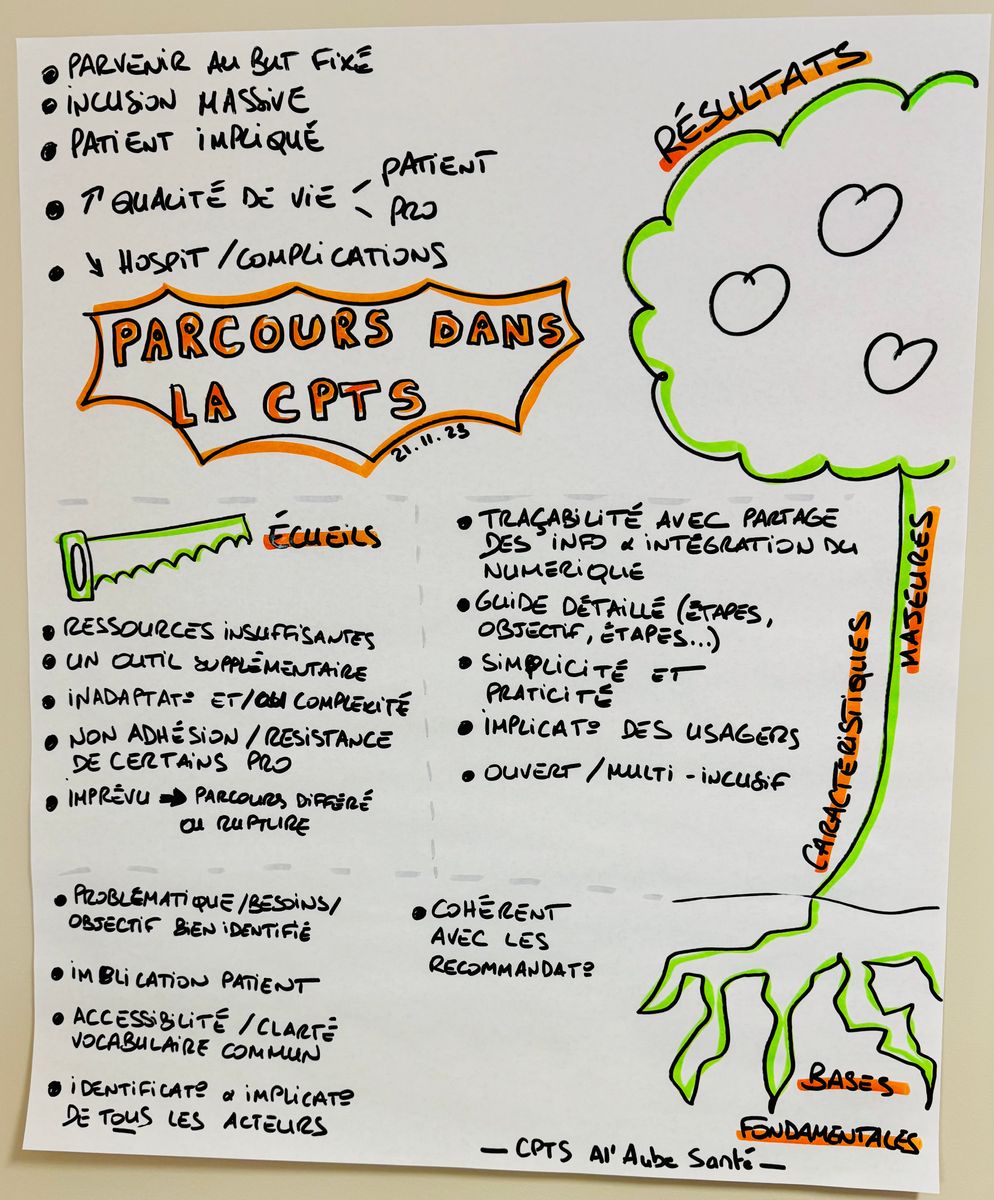 • PARVENIR AU BUT FIXÉ
• INCLUSION MASSIVE
• PATIENT IMPLIQUÉ
• ↑ QUALITÉ DE VIE < PATIENT
PRO
• ↘ HOSPIT / COMPLICATIONS
RÉSULTATS
PARCOURS DANS
LA CPTS
21.11.23
ÉCUEILS
• RESSOURCES INSUFFISANTES
• UN OUTIL SUPPLÉMENTAIRE
• INADAPTAT° ET/OU COMPLEXITÉ
• NON ADHÉSION / RESISTANCE
DE CERTAINS PRO
• IMPRÉVU → PARCOURS DIFFÉRÉ
OU RUPTURE
• TRAÇABILITÉ AVEC PARTAGE
DES INFO & INTÉGRATION DU
NUMÉRIQUE
• GUIDE DÉTAILLÉ (ÉTAPES,
OBJECTIF, ÉTAPES...)
• SIMPLICITÉ ET
PRATICITÉ
• IMPLICAT° DES USAGERS
• OUVERT / MULTI-INCLUSIF
CARACTERISTIQUES
MAJEURES
• PROBLÉMATIQUE / BESOINS /
OBJECTIF BIEN IDENTIFIÉ
• IMPLICATION PATIENT
• ACCESSIBILITÉ / CLARTÉ
VOCABULAIRE COMMUN
• IDENTIFICAT° & IMPLICAT°
DE TOUS LES ACTEURS
• COHÉRENT
AVEC LES
RECOMMANDAT°
BASES
FONDAMENTALES
— CPTS Al'Aube Santé —